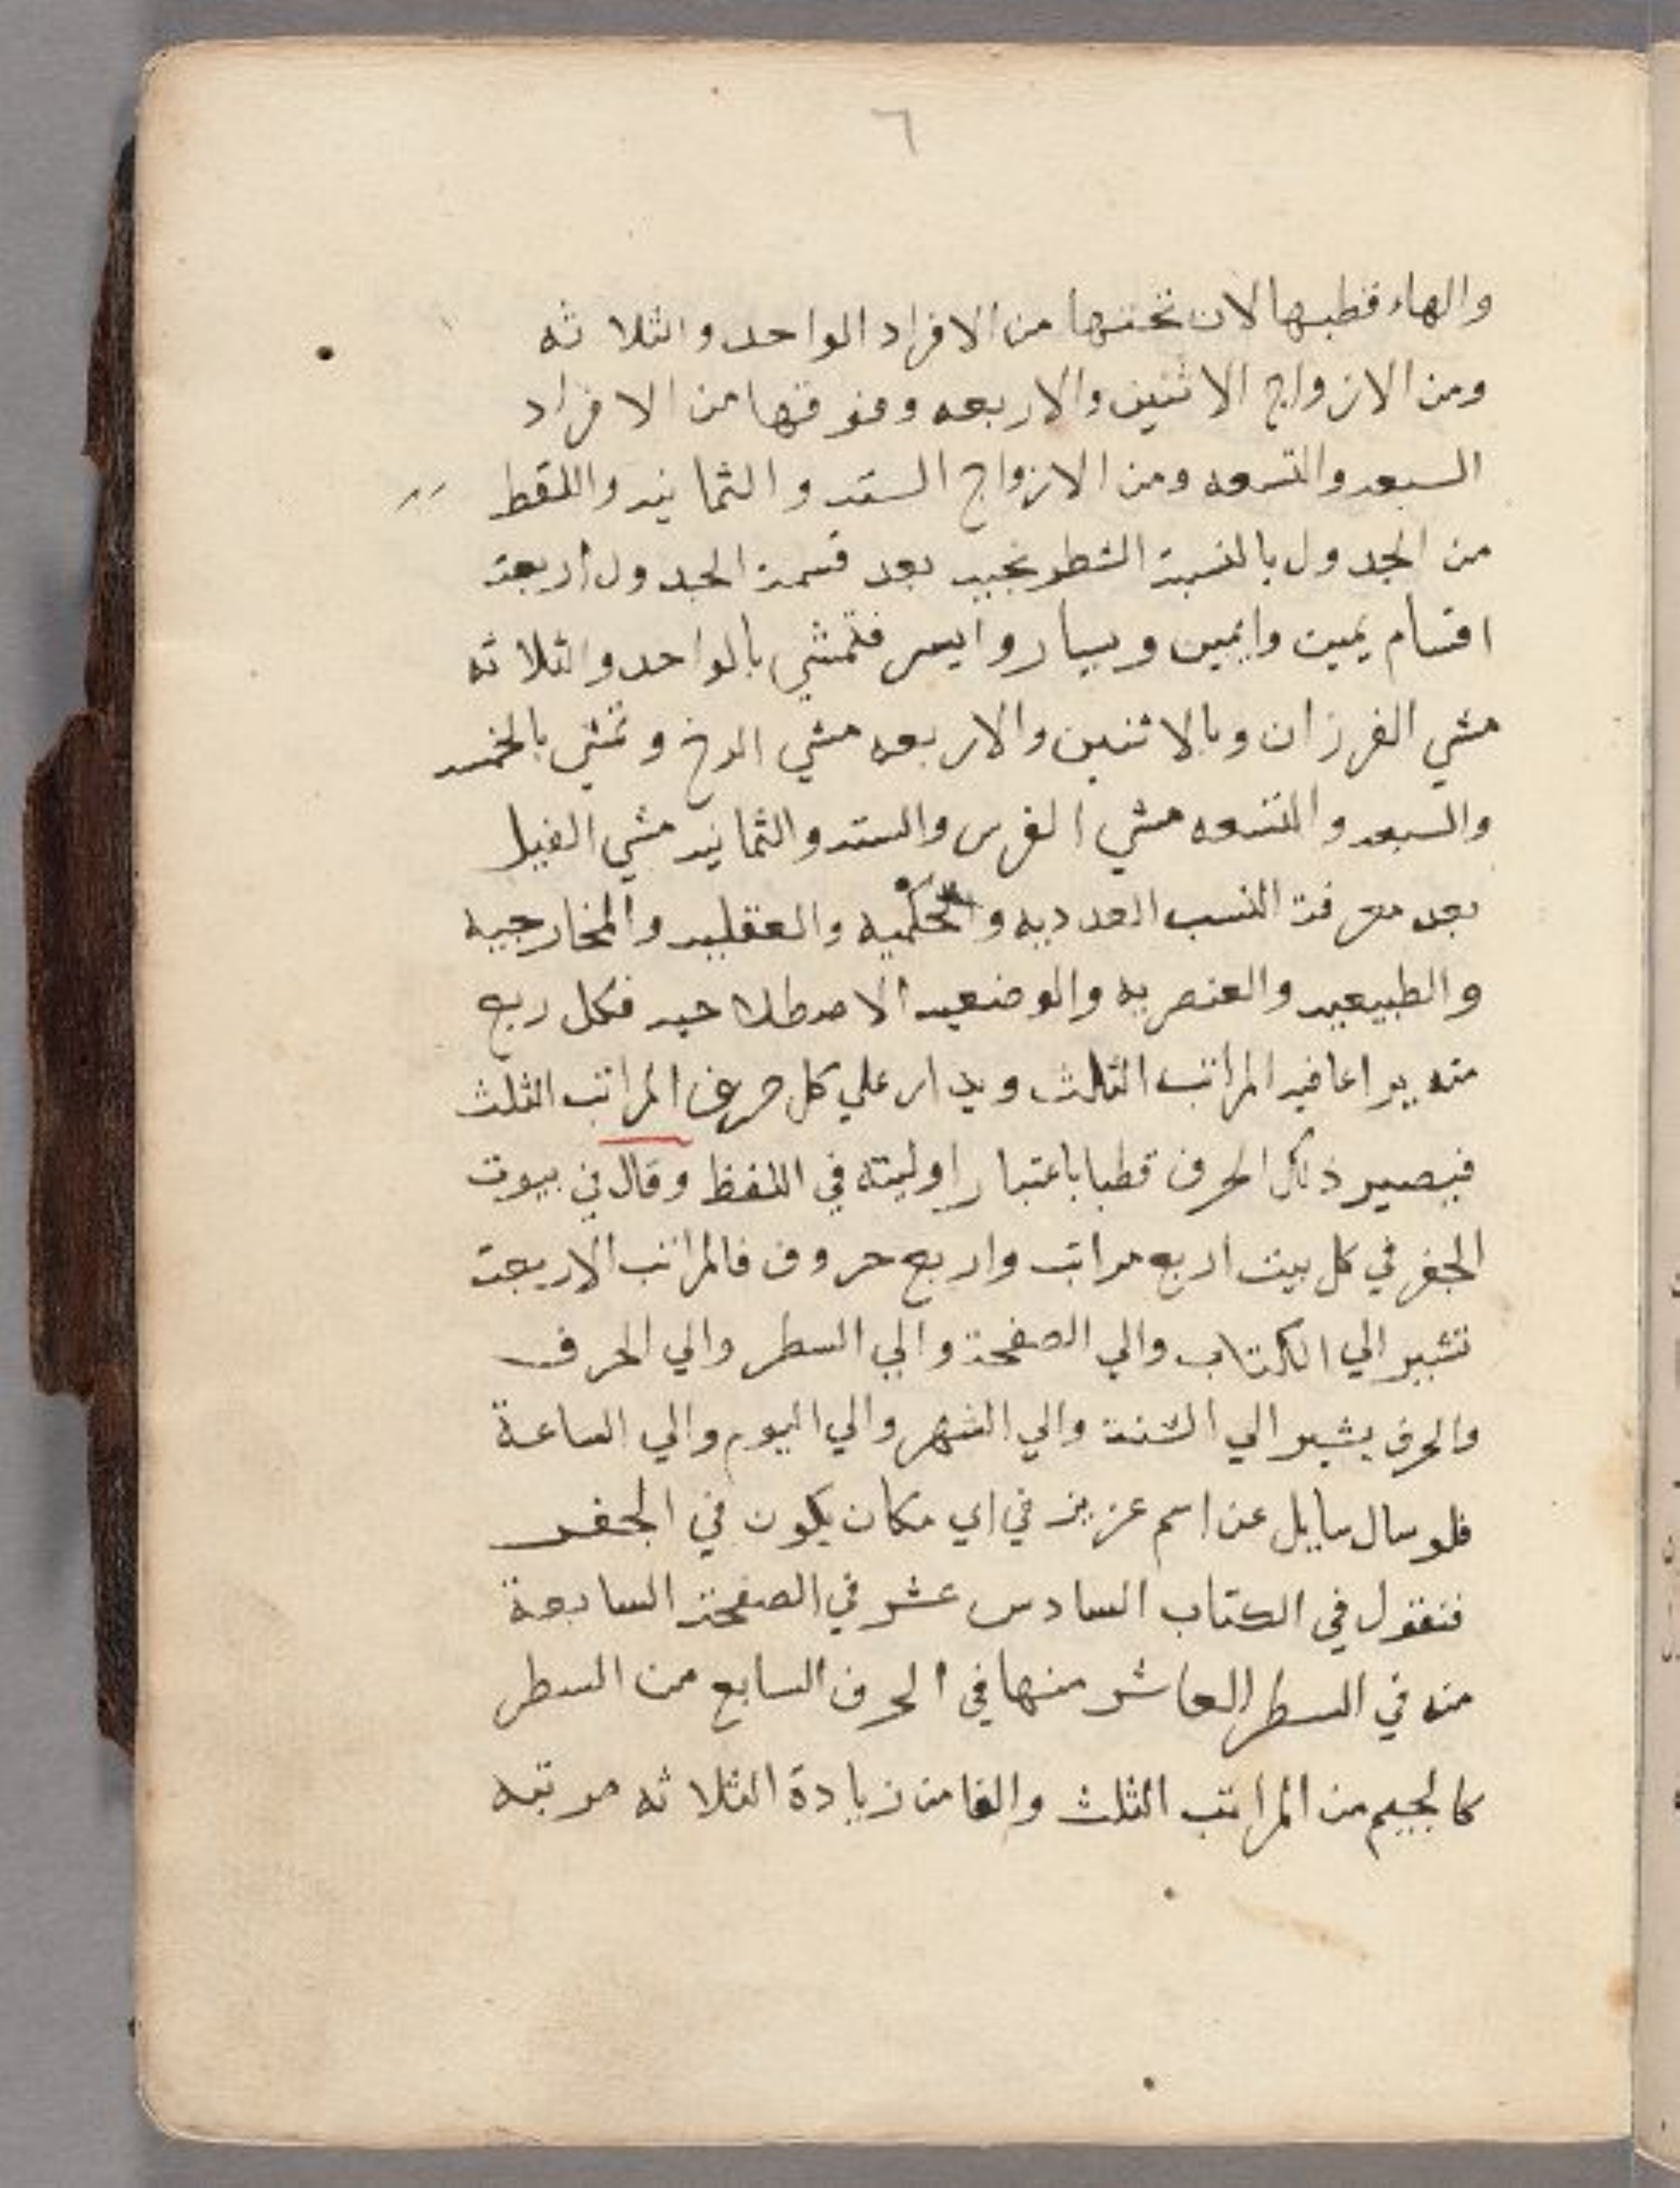 ٦
والهاء قطبها لان تحتها من الافراد الواحد والثلاثه
ومن الازواج الاثنين والاربعه وفوقها من الافراد
السبعه والتسعه ومن الازواج السته والثمانيه واللقط
من الجدول بالنسبة الشطرنجيه بعد قسمة الجدول أربعة
اقسام يمين وايمين ويسار وايسر فتمشي بالواحد والثلاثه
مشي الفرزان وبالاثنين والاربعه مشي الرخ وتمشي بالخمسه
والسبعه والتسعه مشي الفرس والسته والثمانيه مشي الفيل
بعد معرفة النسب العدديه والحكميه والعقليه والخارجيه
والطبيعيه والعنصريه والوضعيه الاصطلاحيه فكل ربع
منه يراعا فيه المراتب الثلث ويدار علي كل حرف المراتب الثلث
فيصير ذلك الحرف قطبا باعتبار اوليته في اللفظ وقال في بيوت
الجفر في كل بيت اربع مراتب واربع حروف فالمراتب الاربعة
تشير الي الكتاب والي الصفحة والي السطر والي الحرف
والحرف يشير الي السنة والي الشهر والي اليوم والي الساعة
فلو سال سايل عن اسم عزيز في اي مكان يكون في الجفر
فنقول في الكتاب السادس عشر في الصفحة السابعة
منه في السطر العاشر منها في الحرف السابع من السطر
كالجيم من المراتب الثلث والفا من زيادة الثلاثه مرتبه